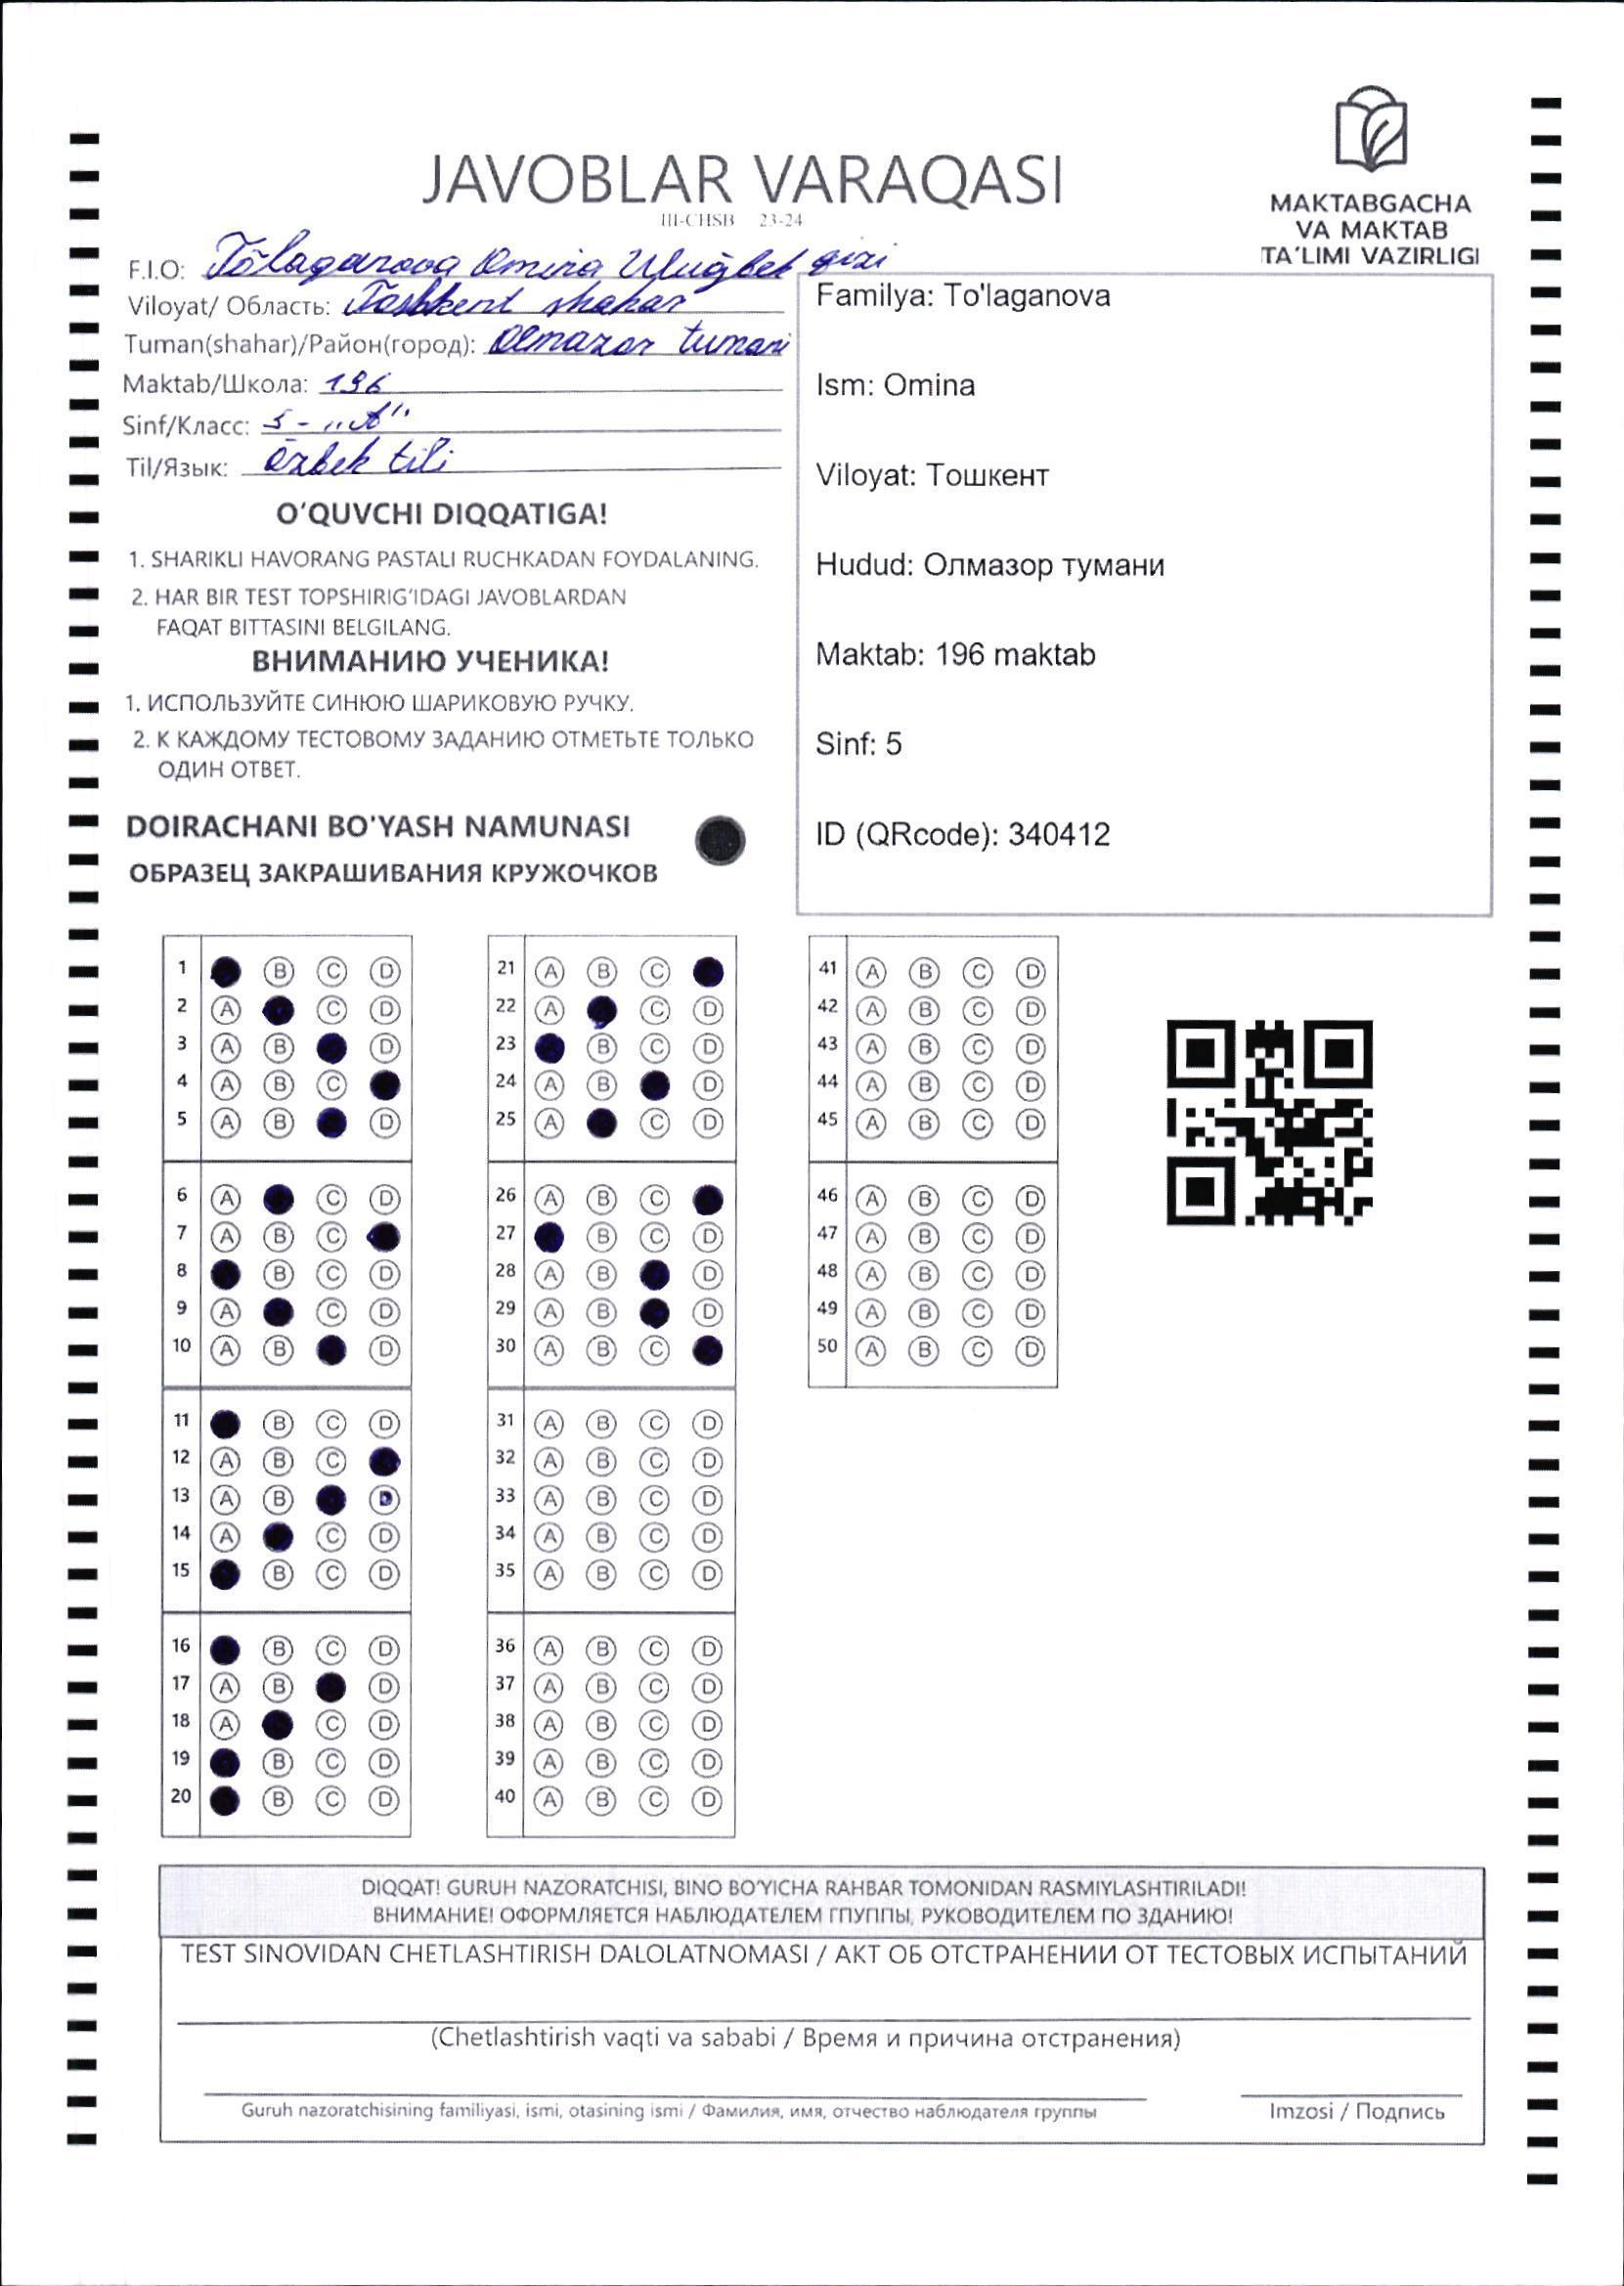 JAVOBLAR VARAQASI
III-CHSB 23-24
MAKTABGACHA
VA MAKTAB
TA'LIMI VAZIRLIGI
F.I.O: To'laganova Omina Ulug'bek qizi
Viloyat/ Область: Toshkent shahar
Tuman(shahar)/Район(город): Olmazor tumani
Maktab/Школа: 196
Sinf/Класс: 5-"A"
Til/Язык: Õzbek tili
O'QUVCHI DIQQATIGA!
1. SHARIKLI HAVORANG PASTALI RUCHKADAN FOYDALANING.
2. HAR BIR TEST TOPSHIRIG'IDAGI JAVOBLARDAN
FAQAT BITTASINI BELGILANG.
ВНИМАНИЮ УЧЕНИКА!
1. ИСПОЛЬЗУЙТЕ СИНЮЮ ШАРИКОВУЮ РУЧКУ.
2. К КАЖДОМУ ТЕСТОВОМУ ЗАДАНИЮ ОТМЕТЬТЕ ТОЛЬКО
ОДИН ОТВЕТ.
DOIRACHANI BO'YASH NAMUNASI
ОБРАЗЕЦ ЗАКРАШИВАНИЯ КРУЖОЧКОВ
Familya: To'laganova
Ism: Omina
Viloyat: Тошкент
Hudud: Олмазор тумани
Maktab: 196 maktab
Sinf: 5
ID (QRcode): 340412
1 B C D
2 A C D
3 A B D
4 A B C
5 A B D
6 A C D
7 A B C
8 B C D
9 A C D
10 A B D
11 B C D
12 A B C
13 A B D
14 A C D
15 B C D
16 B C D
17 A B D
18 A C D
19 B C D
20 B C D
21 A B C
22 A C D
23 B C D
24 A B D
25 A C D
26 A B C
27 B C D
28 A B D
29 A B D
30 A B C
31 A B C D
32 A B C D
33 A B C D
34 A B C D
35 A B C D
36 A B C D
37 A B C D
38 A B C D
39 A B C D
40 A B C D
41 A B C D
42 A B C D
43 A B C D
44 A B C D
45 A B C D
46 A B C D
47 A B C D
48 A B C D
49 A B C D
50 A B C D
DIQQAT! GURUH NAZORATCHISI, BINO BO'YICHA RAHBAR TOMONIDAN RASMIYLASHTIRILADI!
ВНИМАНИЕ! ОФОРМЛЯЕТСЯ НАБЛЮДАТЕЛЕМ ГПУППЫ, РУКОВОДИТЕЛЕМ ПО ЗДАНИЮ!
TEST SINOVIDAN CHETLASHTIRISH DALOLATNOMASI / АКТ ОБ ОТСТРАНЕНИИ ОТ ТЕСТОВЫХ ИСПЫТАНИЙ
(Chetlashtirish vaqti va sababi / Время и причина отстранения)
Guruh nazoratchisining familiyasi, ismi, otasining ismi / Фамилия, имя, отчество наблюдателя группы
Imzosi / Подпись